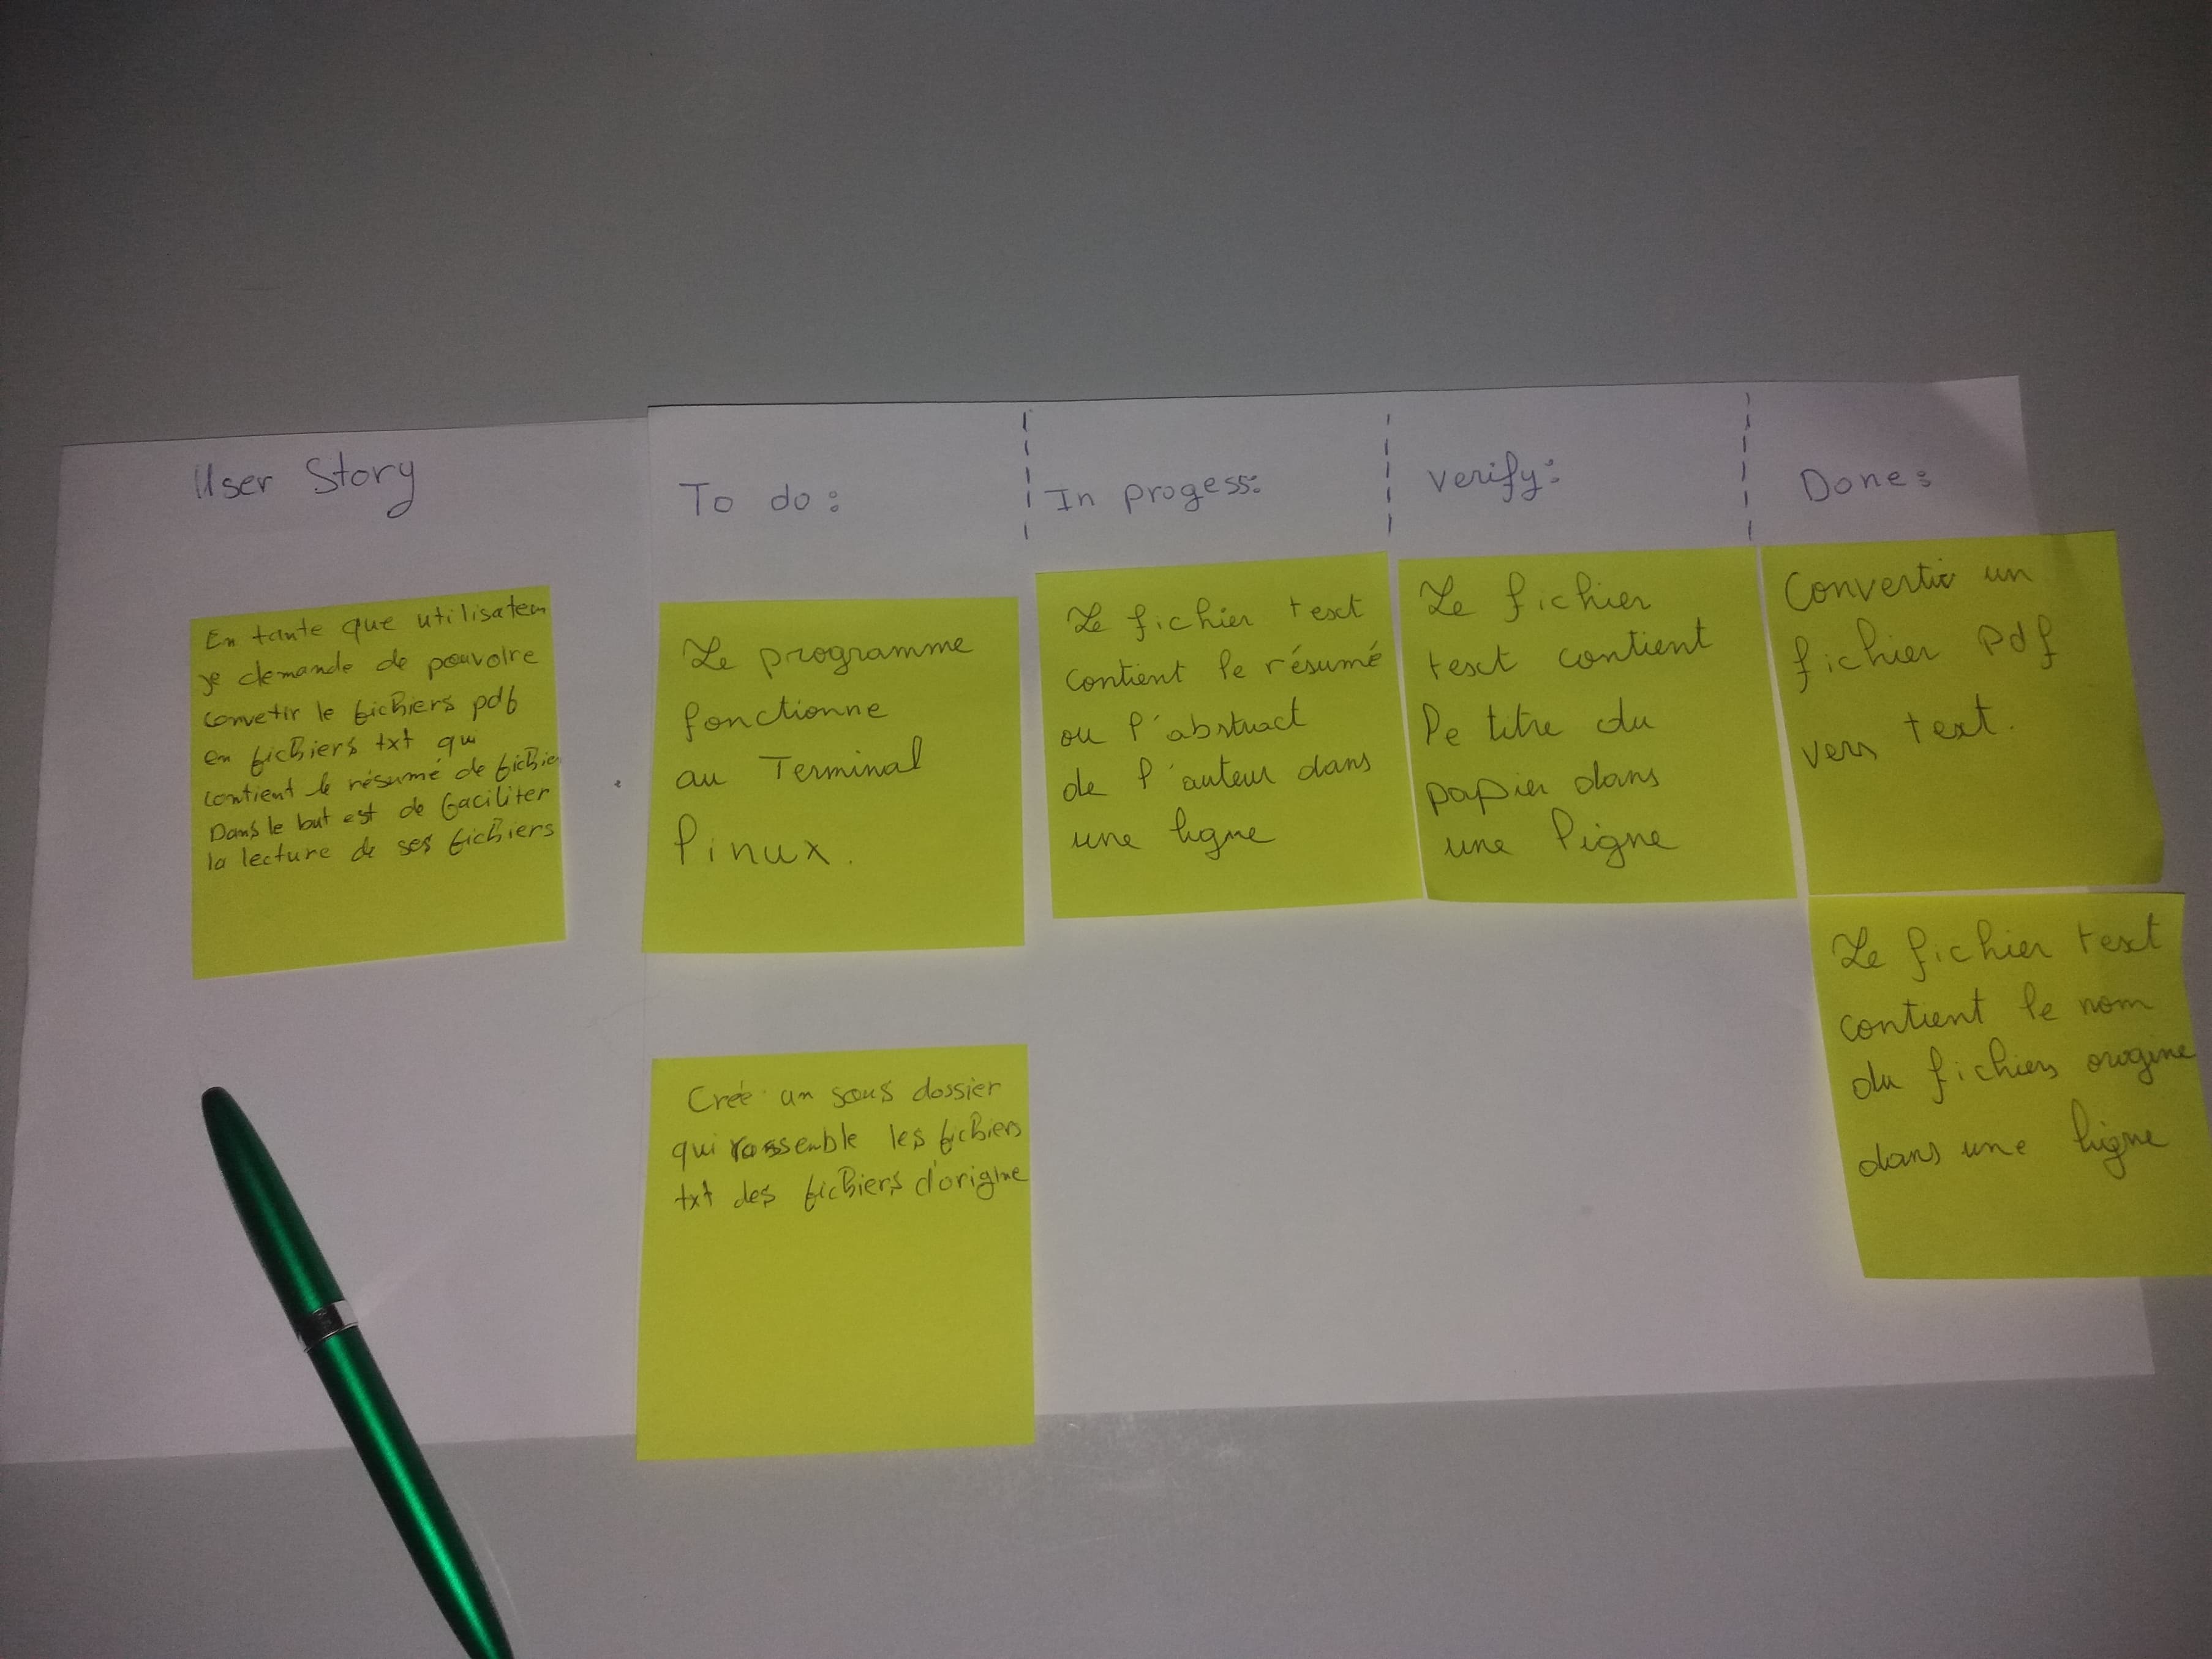 User Story
En tante que utilisateu
je demande de pouvoire
convetir le fichiers pdf
en fichiers txt qui
contient le résumé de fichie
Dans le but est de faciliter
la lecture de ses fichiers
To do :
Le programme
fonctionne
au Terminal
linux.
Créé un sous dossier
qui rassemble les fichiers
txt des fichiers d'origine
In progess:
Le fichier text
contient le résumé
ou l'abstract
de l'auteur dans
une ligne
verify:
Le fichier
text contient
le titre du
papier dans
une ligne
Done:
Convertir un
fichier Pdf
vers text.
Le fichier text
contient le nom
du fichiers origine
dans une ligne